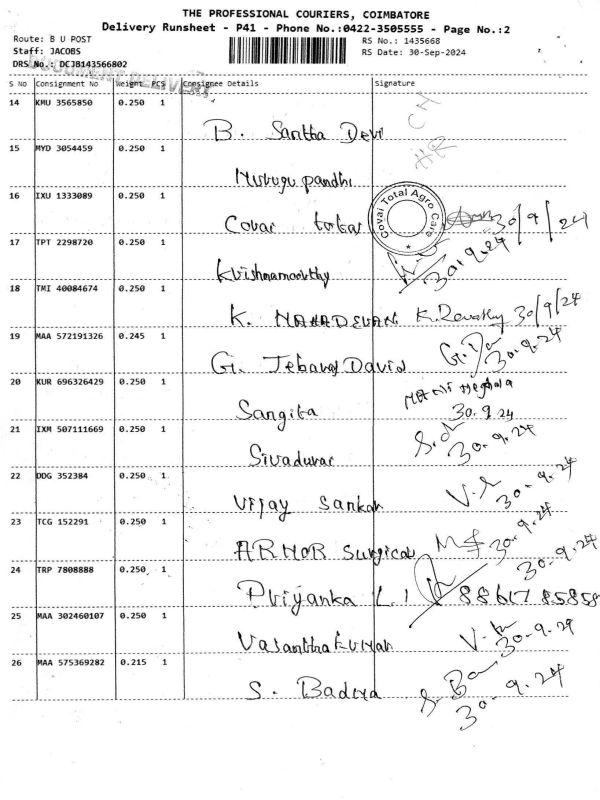 THE PROFESSIONAL COURIERS, COIMBATORE
Delivery Runsheet - P41 - Phone No.:0422-3505555 - Page No.:2
Route: B U POST
RS No.: 1435668
Staff: JACOBS
RS Date: 30-Sep-2024
DRS No.: DCJB143566802
DOCUMENT DELIVERY
S No Consignment No Weight PCS Consignee Details Signature
14 KMU 3565850 0.250 1
B. Santha Devi
15 MYD 3054459 0.250 1
Murugu pandhi
16 IXU 1333089 0.250 1
Covai total
Covai Total Agro Care
30/9/24
17 TPT 2298720 0.250 1
Krishnamoorthy
30.9.24
18 TMI 40084674 0.250 1
K. MAHADEVAN K. Revathy 30/9/24
19 MAA 572191326 0.245 1
G. Jebaraj David
30.9.24
20 KUR 696326429 0.250 1
Sangita
30.9.24
21 IXM 507111669 0.250 1
Sivadurai
30.9.24
22 DDG 352384 0.250 1
Vijay Sankar
30.9.24
23 TCG 152291 0.250 1
ARMOR Surgical
30.9.24
24 TRP 7808888 0.250 1
30.9.24
Priyanka L.I 88617 85858
25 MAA 302460107 0.250 1
Vasanthakumar
30.9.24
26 MAA 575369282 0.215 1
S. Badiya
30.9.24